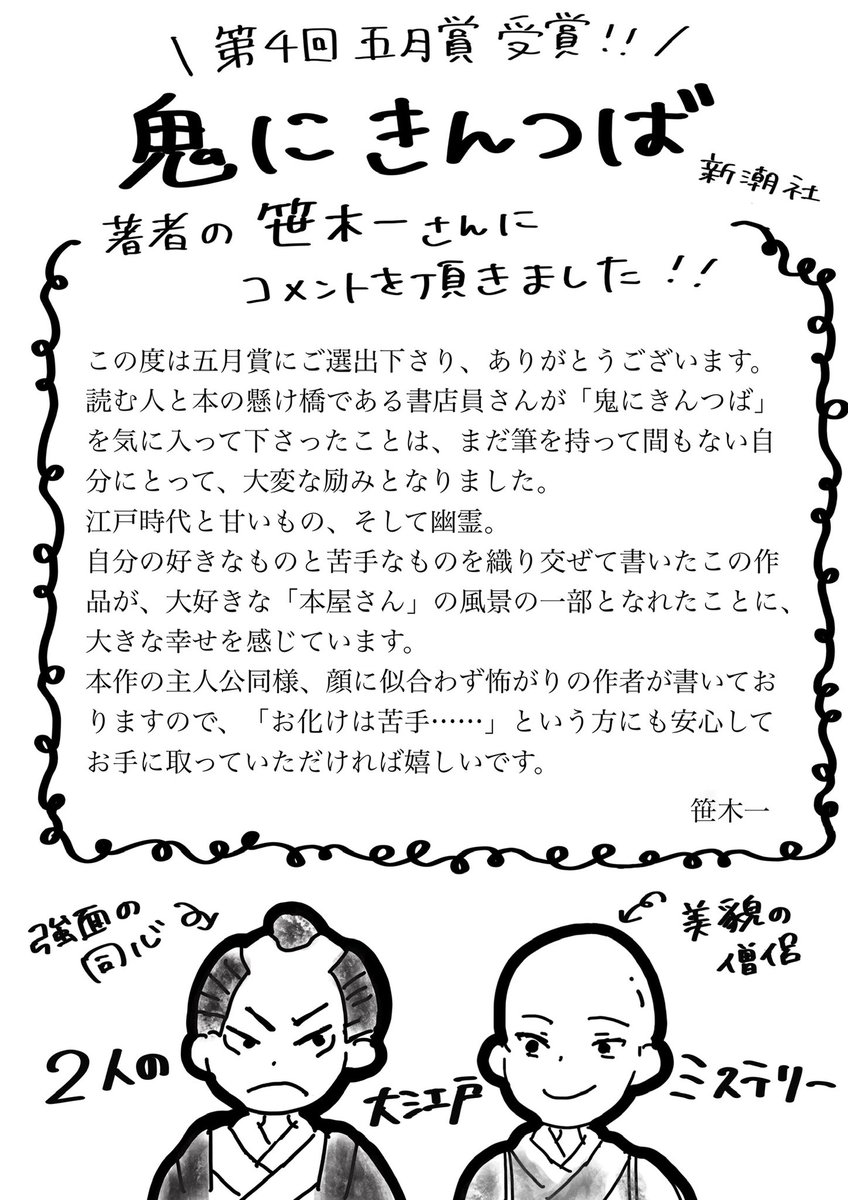 \ 第4回 五月賞 受賞!! /
鬼にきんつば
新潮社
著者の 笹木一さんに
コメントを頂きました!!
この度は五月賞にご選出下さり、ありがとうございます。
読む人と本の懸け橋である書店員さんが「鬼にきんつば」
を気に入って下さったことは、まだ筆を持って間もない自
分にとって、大変な励みとなりました。
江戸時代と甘いもの、そして幽霊。
自分の好きなものと苦手なものを織り交ぜて書いたこの作
品が、大好きな「本屋さん」の風景の一部となれたことに、
大きな幸せを感じています。
本作の主人公同様、顔に似合わず怖がりの作者が書いてお
りますので、「お化けは苦手……」という方にも安心して
お手に取っていただければ嬉しいです。
笹木一
強面の
同心
美貌の
僧侶
2人の
大江戸
ミステリー